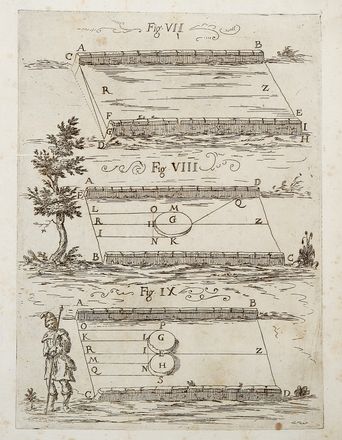 Fig VII
A B
C
R Z
F E
G I
D H
Fig VIII
A D
E
Q
L O M
R H G Z
I
N K
B C
Fig IX
A B
O P
K I G
R I Z
M L
Q N H
S
C D